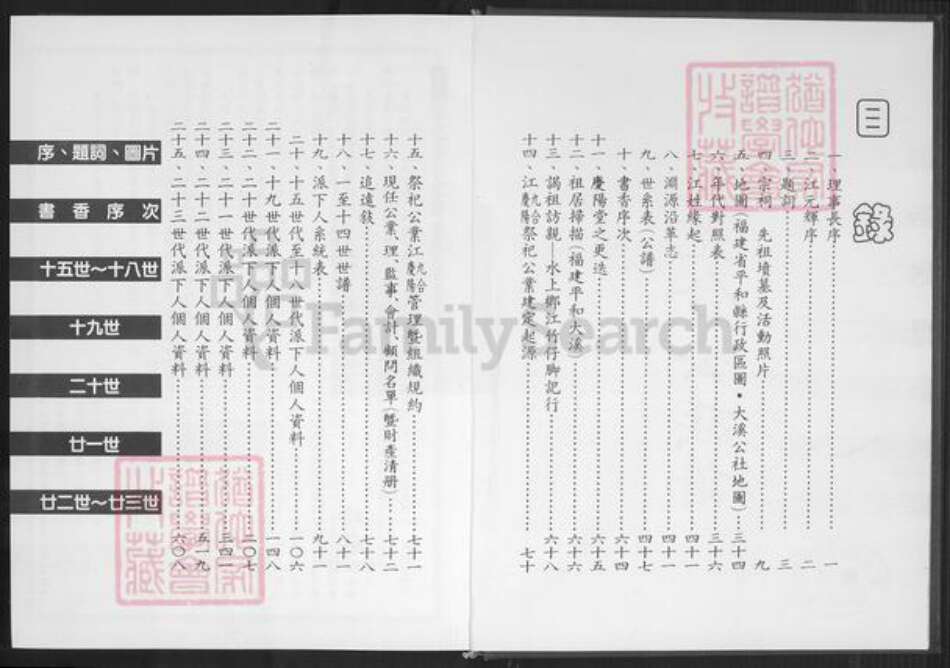 目錄
一、理事長序……一
二、江元輝序……二
三、題詞……三
四、宗祠、先祖墳墓及活動照片……九
五、地圖(福建省平和縣行政區圖•大溪公社地圖)……三十四
六、年代對照表……三十六
七、江姓緣起……四十一
八、淵源沿革志……四十一
九、世系表(公譜)……四十七
十、書香序次……六十四
十一、慶陽堂之更迭……六十五
十二、祖居掃描(福建平和大溪)……六十六
十三、謁祖訪親——水上鄉江竹仔脚記行……六十八
十四、江九合慶陽祭祀公業建定起源……七十
十五、祭祀公業江九合慶陽管理暨組織規約……七十一
十六、現任公業、理、監事、會計、顧問名單(暨財產清册)……七十二
十七、追遠錄……七十八
十八、一至十四世世譜……八十一
十九、派下人系統表……九十一
二十、十五世代至十八世代派下人個人資料……一〇六
二十一、十九世代派下人個人資料……一四八
二十二、二十世代派下人個人資料……二〇七
二十三、二十一世代派下人個人資料……三四一
二十四、二十二世代派下人個人資料……五一九
二十五、二十三世代派下人個人資料……六〇八
序、題詞、圖片
書香序次
十五世～十八世
十九世
二十世
廿一世
廿二世～廿三世
FamilySearch